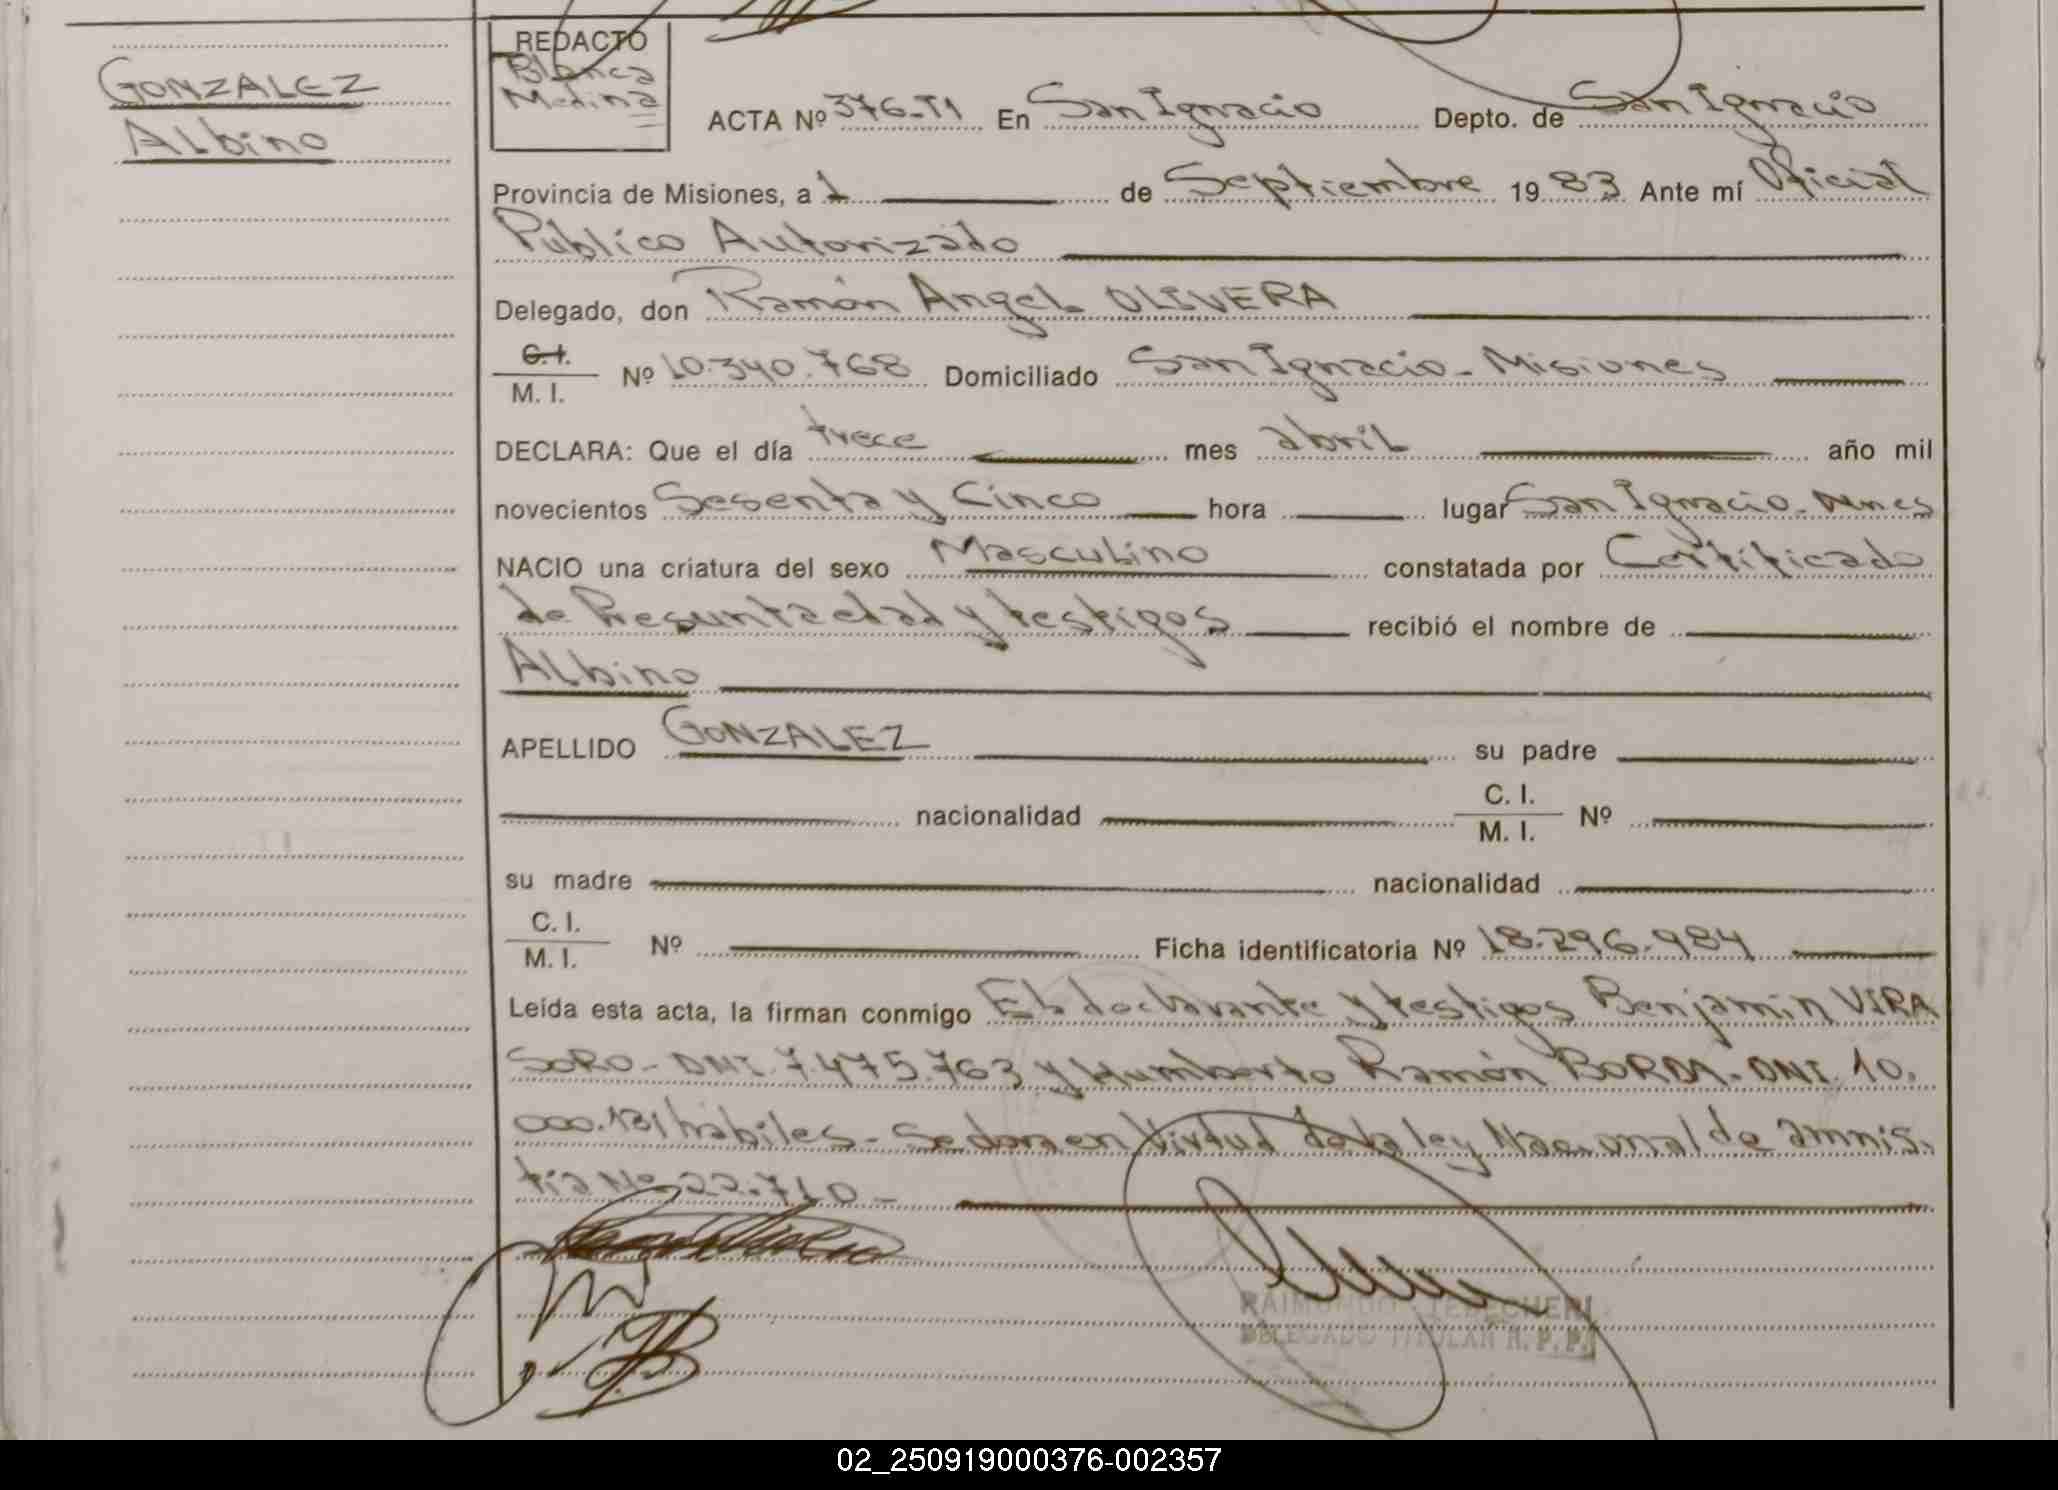 GONZALEZ
Albino
REDACTO
Blanca
Medina
ACTA Nº 376-T1 En San Ignacio Depto. de San Ignacio
Provincia de Misiones, a 1 de Septiembre 1983 Ante mí Oficial
Público Autorizado
Delegado, don Ramón Angel OLIVERA
C.I.
M. I. Nº 10.340.768 Domiciliado San Ignacio - Misiones
DECLARA: Que el día trece mes abril año mil
novecientos Sesenta y Cinco hora lugar San Ignacio -
NACIO una criatura del sexo Masculino constatada por Certificado
de Presunta edad y testigos recibió el nombre de
Albino
APELLIDO GONZALEZ su padre
nacionalidad C. I.
M. I. Nº
su madre nacionalidad
C. I.
M. I. Nº Ficha identificatoria Nº 18.296.984
Leída esta acta, la firman conmigo El declarante y testigos Benjamín VIRA
SORO - DNI. 7.475.763 y Humberto Ramón DNI. 10.
000.131 hábiles - Se labra en Virtud de la ley Nacional de amnis-
tía Nº 22.710 -
RAIMUNDO
DELEGADO TITULAR R. P. P.
02_250919000376-002357